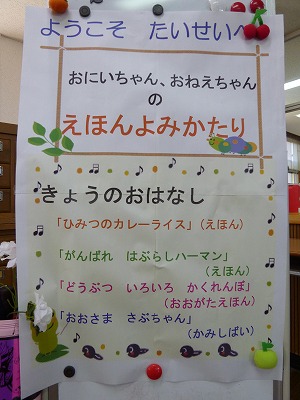 ようこそ　たいせいへ
おにいちゃん、おねえちゃん
の
えほんよみかたり
きょうのおはなし
「ひみつのカレーライス」（えほん）
「がんばれ　はぶらしハーマン」
（えほん）
「どうぶつ　いろいろ　かくれんぼ」
（おおがたえほん）
「おおさま　さぶちゃん」
（かみしばい）